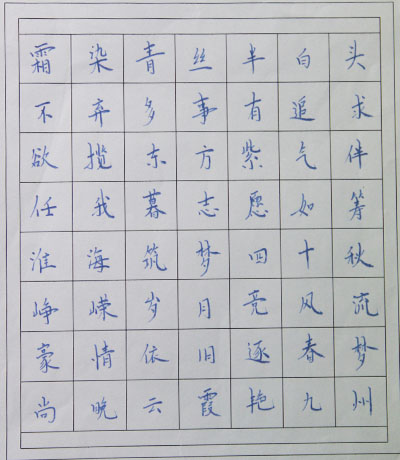 霜染青丝半白头
不弃多事有追求
欲揽东方紫气伴
任我暮志愿如筹
淮海筑梦四十秋
峥嵘岁月亮风流
豪情依旧逐春梦
尚晚云霞艳九州